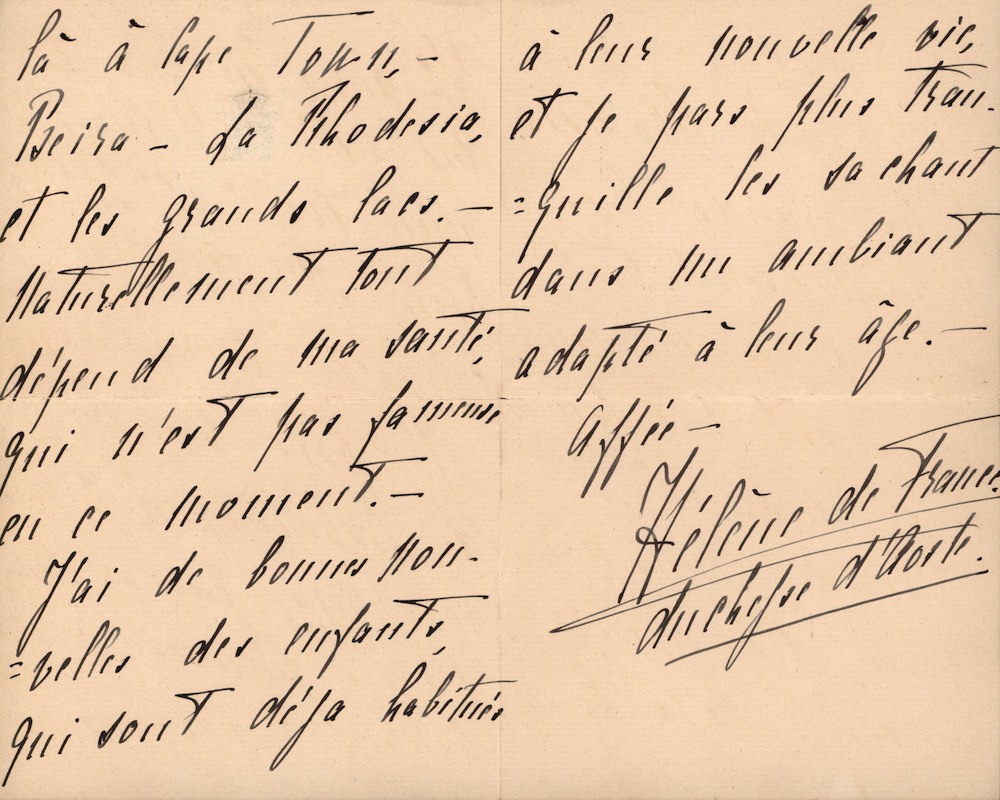 là à Cape Town, –
Beira – La Rhodesia,
et les grands lacs. –
Naturellement tout
dépend de ma santé,
qui n'est pas fameuse
en ce moment. –
J'ai de bonnes nou-
=velles des enfants,
qui sont déja habitués
à leur nouvelle vie,
et je pars plus tran-
=quille les sachant
dans un ambiant
adapté à leur âge. –
Affée –
Hélène de France
duchesse d'Aoste.